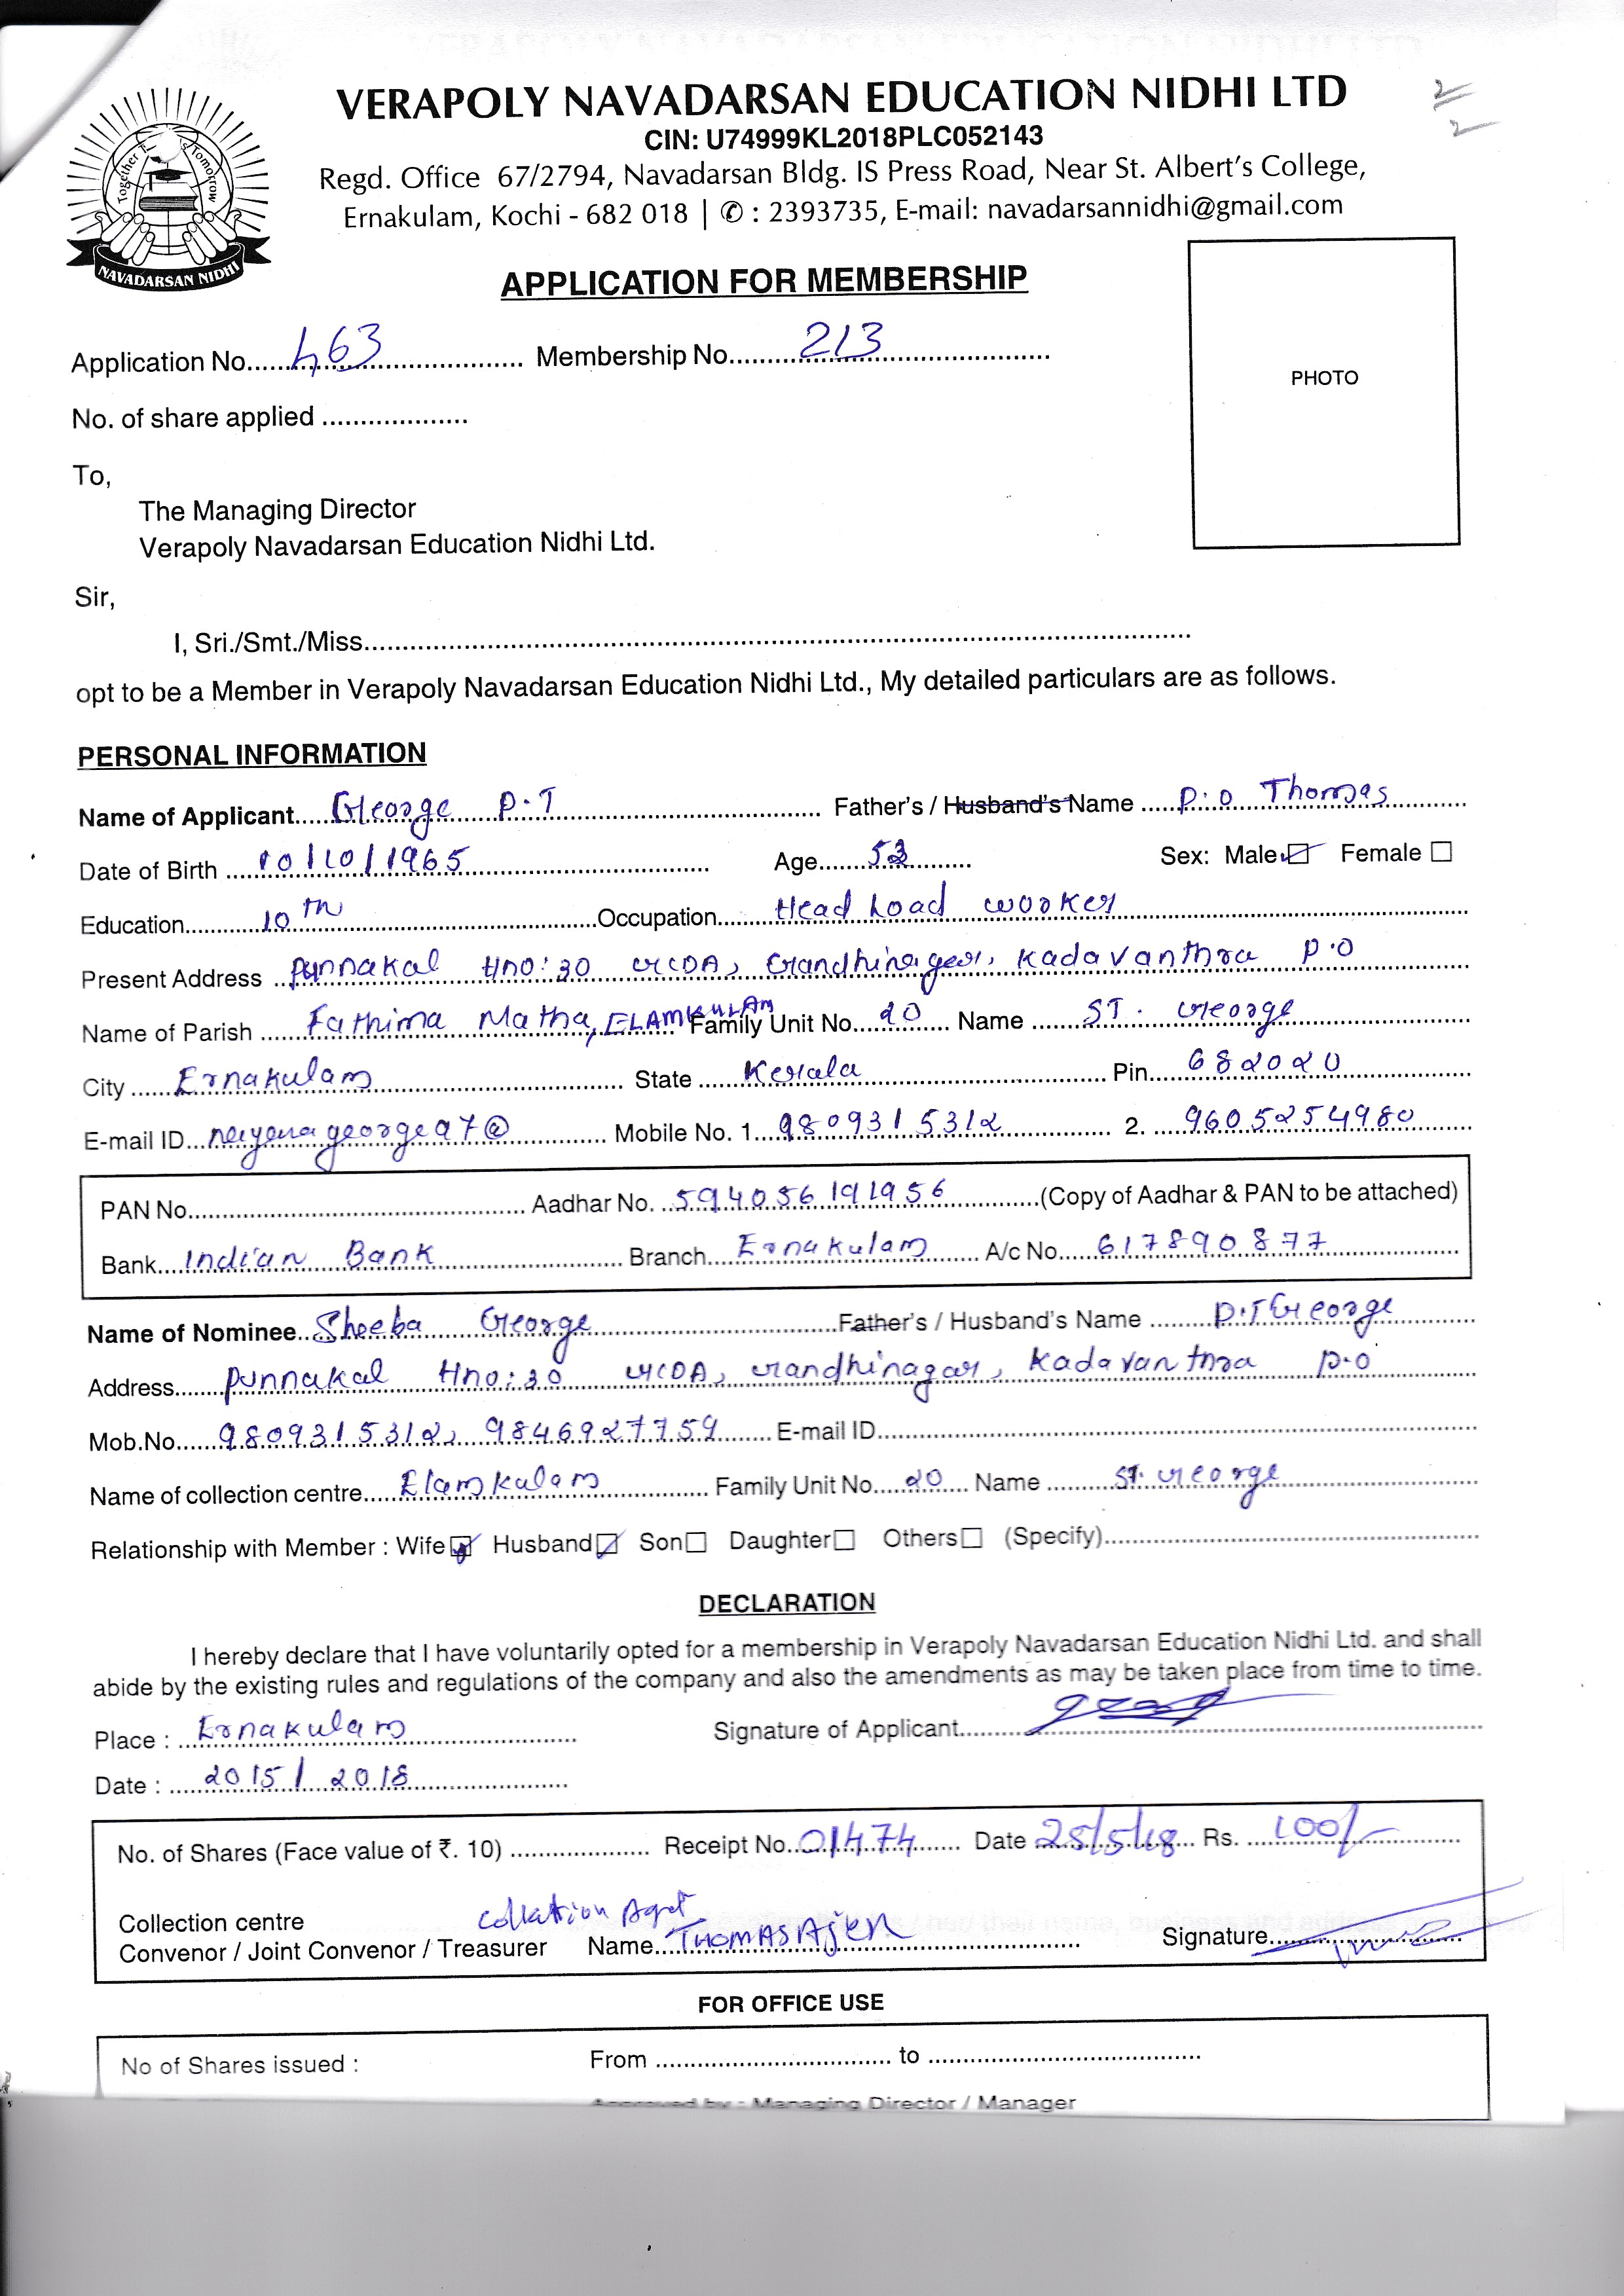 VERAPOLY NAVADARSAN EDUCATION NIDHI LTD
CIN: U74999KL2018PLC052143
Regd. Office 67/2794, Navadarsan Bldg. IS Press Road, Near St. Albert's College,
Ernakulam, Kochi - 682 018 | ✆ : 2393735, E-mail: navadarsannidhi@gmail.com
Together Tomorrow
NAVADARSAN NIDHI
2
2
APPLICATION FOR MEMBERSHIP
Application No. 463 Membership No. 213
No. of share applied
PHOTO
To,
The Managing Director
Verapoly Navadarsan Education Nidhi Ltd.
Sir,
I, Sri./Smt./Miss
opt to be a Member in Verapoly Navadarsan Education Nidhi Ltd., My detailed particulars are as follows.
PERSONAL INFORMATION
Name of Applicant George P.T Father's / Husband's Name P.O Thomas
Date of Birth 10/10/1965 Age 53 Sex: Male Female
Education 10th Occupation Head Load worker
Present Address Punnakal Hno: 30 GCDA, Gandhinagar, Kadavanthra P.O
Name of Parish Fathima Matha, ELAMKULAM Family Unit No. 20 Name ST. George
City Ernakulam State Kerala Pin 682020
E-mail ID nayanageorge97@ Mobile No. 1. 9809315312 2. 9605254980
PAN No. Aadhar No. 594056191956 (Copy of Aadhar & PAN to be attached)
Bank Indian Bank Branch Ernakulam A/c No. 617890877
Name of Nominee Sheeba George Father's / Husband's Name P.T George
Address Punnakal Hno: 30 GCDA, Gandhinagar, Kadavanthra P.O
Mob.No. 9809315312, 9846927759 E-mail ID
Name of collection centre Elamkulam Family Unit No. 20 Name ST. George
Relationship with Member : Wife Husband Son Daughter Others (Specify)
DECLARATION
I hereby declare that I have voluntarily opted for a membership in Verapoly Navadarsan Education Nidhi Ltd. and shall
abide by the existing rules and regulations of the company and also the amendments as may be taken place from time to time.
Place : Ernakulam Signature of Applicant
Date : 20/5/2018
No. of Shares (Face value of ₹. 10) Receipt No. 01474 Date 25/5/18 Rs. 100/-
Collection centre
Convenor / Joint Convenor / Treasurer Name Collation Agnt THOMAS Ajen Signature
FOR OFFICE USE
No of Shares issued : From to
Approved by : Managing Director / Manager